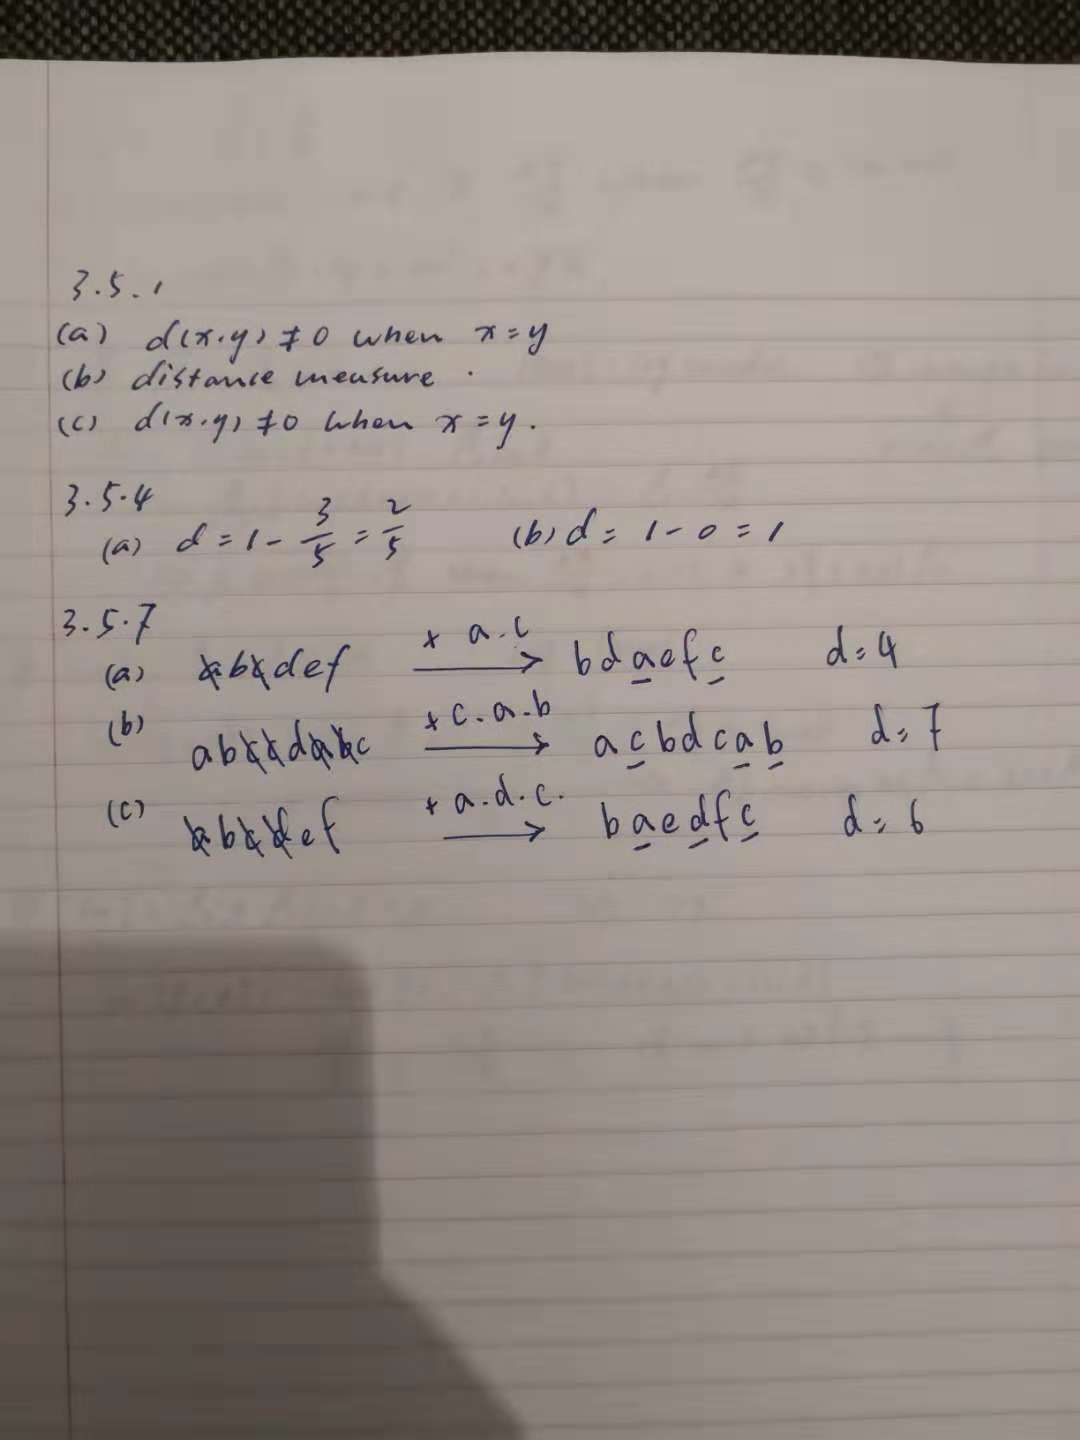 3.5.1
(a) d(x.y) ≠ 0 when x = y
(b) distance measure .
(c) d(x.y) ≠ 0 when x = y.
3.5.4
(a) d = 1 - 3/5 = 2/5 (b) d = 1 - 0 = 1
3.5.7
(a) abcdef + a.c → bdaefc d=4
(b) abccdabc + c.a.b → acbdcab d=7
(c) abccdef + a.d.c. → baedfc d=6